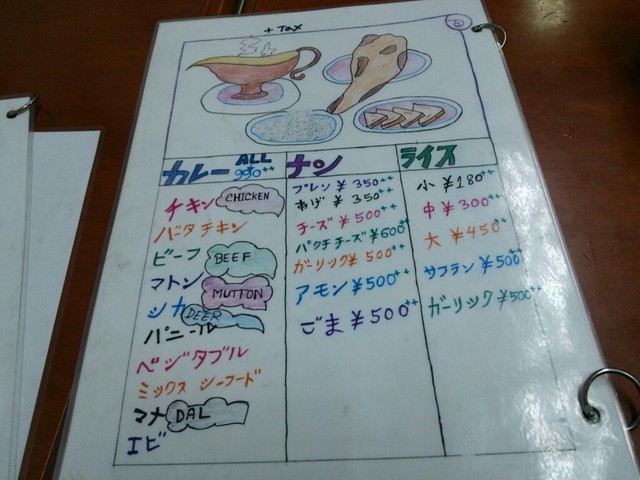 + Tax
カレー ALL 950++
チキン CHICKEN
バタチキン
ビーフ BEEF
マトン MUTTON
シカ DEER
パニール
ベジタブル
ミックス シーフード
マメ DAL
エビ
ナン
プレン ¥350++
あげ ¥350++
チーズ ¥500++
パクチチーズ ¥600++
ガーリック ¥500++
アモン ¥500++
ごま ¥500++
ライス
小 ¥180++
中 ¥300++
大 ¥450++
サフラン ¥500++
ガーリック ¥500++